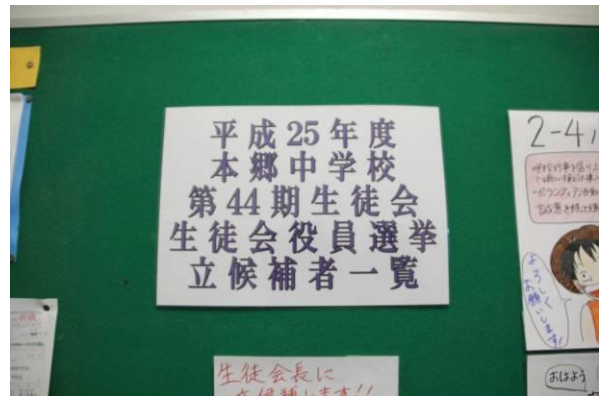 平成25年度
本郷中学校
第44期生徒会
生徒会役員選挙
立候補者一覧
2-4
よろしく
お願いします!
生徒会長に
立候補します!!
おはよう